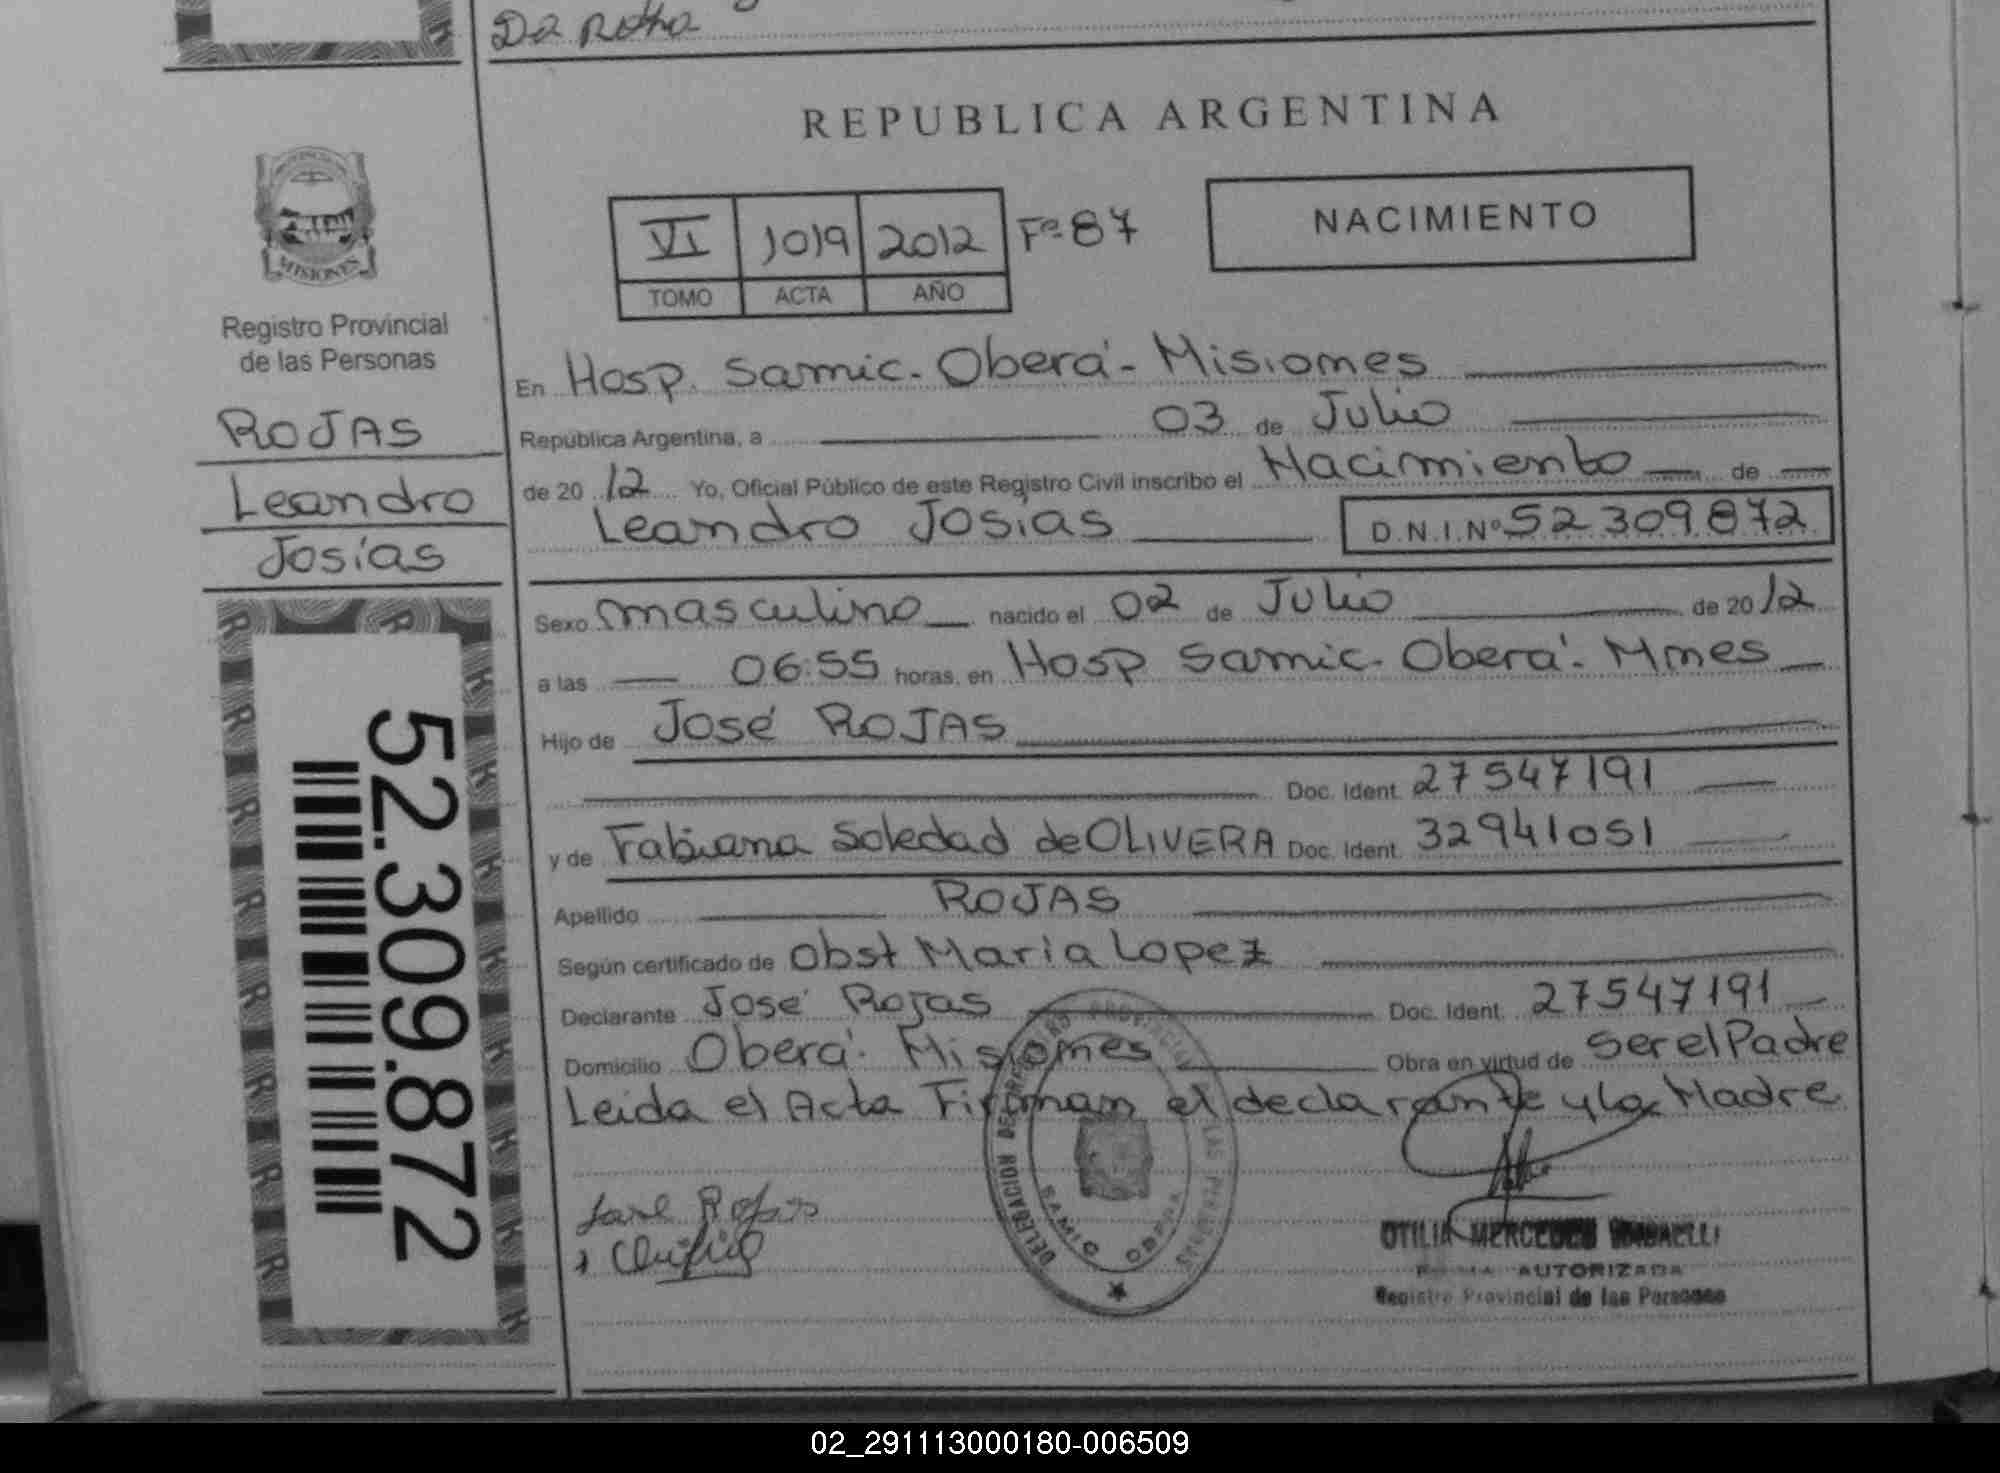 Da Rotha
REPUBLICA ARGENTINA
VI 1019 2012 Fº 87
TOMO ACTA AÑO
NACIMIENTO
PROVINCIA DE
MISIONES
Registro Provincial
de las Personas
ROJAS
Leandro
Josías
52.309.872
En Hosp. Samic. Oberá - Misiones
República Argentina, a 03 de Julio
de 2012 Yo, Oficial Público de este Registro Civil inscribo el Nacimiento de
Leandro Josías D.N.I.Nº 52 309.872
Sexo masculino nacido el 02 de Julio de 2012
a las 06:55 horas, en Hosp Samic. Oberá. Mnes
Hijo de José ROJAS
Doc. Ident. 27547191
y de Fabiana Soledad de OLIVERA Doc. Ident. 32941051
Apellido ROJAS
Según certificado de Obst Maria Lopez
Declarante José Rojas Doc. Ident. 27547191
Domicilio Oberá. Misiones Obra en virtud de ser el Padre
Leida el Acta Firman el declarante y la Madre
José Rojas
DELEGACION DE REGISTRO PROVINCIAL DE LAS PERSONAS
SAMIC OBERA
OTILIA MERCEDES
FIRMA AUTORIZADA
Registro Provincial de las Personas
02_291113000180-006509